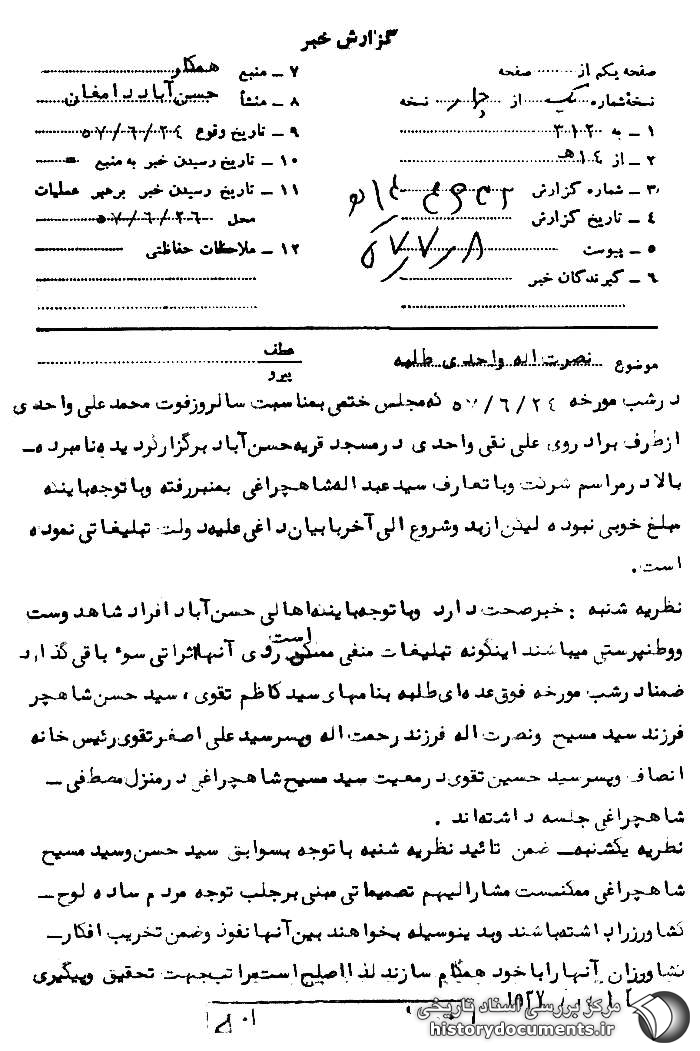 گزارش خبر
صفحه یکم از ........ صفحه
نسخه شماره یک از چهار نسخه
۱ ـ به ۳۱۲۰
۲ ـ از ۱۴هـ
۳ ـ شماره گزارش
۴ ـ تاریخ گزارش
۵ ـ پیوست
۶ ـ گیرندگان خبر
۷ ـ منبع همکار
۸ ـ منشأ حسن آباد دامغان
۹ ـ تاریخ وقوع ۵۷/۶/۲۴
۱۰ ـ تاریخ رسیدن خبر به منبع
۱۱ ـ تاریخ رسیدن خبر برهبر عملیات
محل ۵۷/۶/۲۶
۱۲ ـ ملاحظات حفاظتی
موضوع نصرت اله واحدی طلبه
عطف
پیرو
درشب مورخه ۵۷/۶/۲۴ که مجلس ختمی بمناسبت سالروزفوت محمدعلی واحدی
ازطرف برادروی علی نقی واحدی درمسجد قریه حسن آباد برگزارگردیده نامبرده ـ
بالا درمراسم شرکت وبا تعارف سیدعبداله شاهچراغی بمنبررفته وبا توجه باینکه
مبلغ خوبی نبوده لیکن ازبدو شروع الی آخربا بیان داغی علیه دولت تبلیغاتی نموده
است.
نظریه شنبه : خبرصحت دارد وبا توجه باینکه اهالی حسن آباد افراد شاهدوست
ووطنپرستی میباشند اینگونه تبلیغات منفی ممکن است روی آنها اثراتی سوء باقی گذارد
ضمنا درشب مورخه فوق عده ای طلبه بنامهای سیدکاظم تقوی ، سید حسن شاهچر
فرزند سید مسیح ونصرت اله فرزند رحمت اله وپسرسیدعلی اصغرتقوی رئیس خانه
انصاف وپسرسید حسین تقوی درمعیت سید مسیح شاهچراغی درمنزل مصطفی ـ
شاهچراغی جلسه داشته اند .
نظریه یکشنبه ـ ضمن تائید نظریه شنبه با توجه بسوابق سید حسن وسید مسیح
شاهچراغی ممکنست مشارالیهم تصمیماتی مبنی برجلب توجه مردم ساده لوح ـ
کشاورزراداشته باشند وبدینوسیله بخواهند بین آنها نفوذ وضمن تخریب افکار ـ
کشاورزان آنها را با خود همگام سازند لذا اصلح است مراتب جهت تحقیق وپیگیری
مرکز بررسی اسناد تاریخی
historydocuments.ir